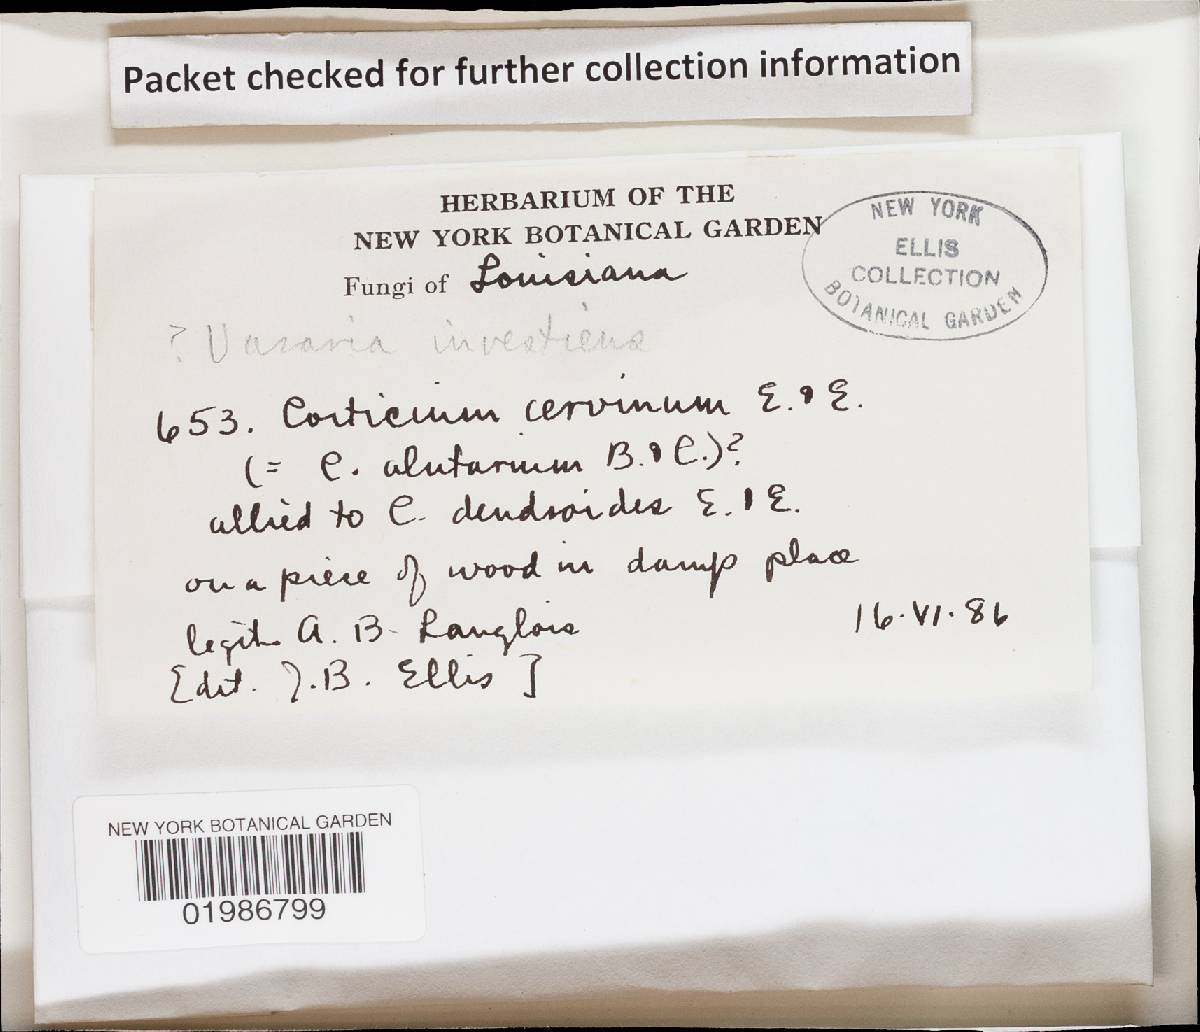 Packet checked for further collection information
HERBARIUM OF THE
NEW YORK BOTANICAL GARDEN
Fungi of Louisiana
NEW YORK
ELLIS
COLLECTION
BOTANICAL GARDEN
? Vararia investiens
653. Corticium cervinum E. & E.
(= C. alutarium B. & C.)?
allied to C. dendroides E. & E.
on a piece of wood in damp place
legit. A. B. Langlois 16.VI.86
[det. J.B. Ellis]
NEW YORK BOTANICAL GARDEN
01986799